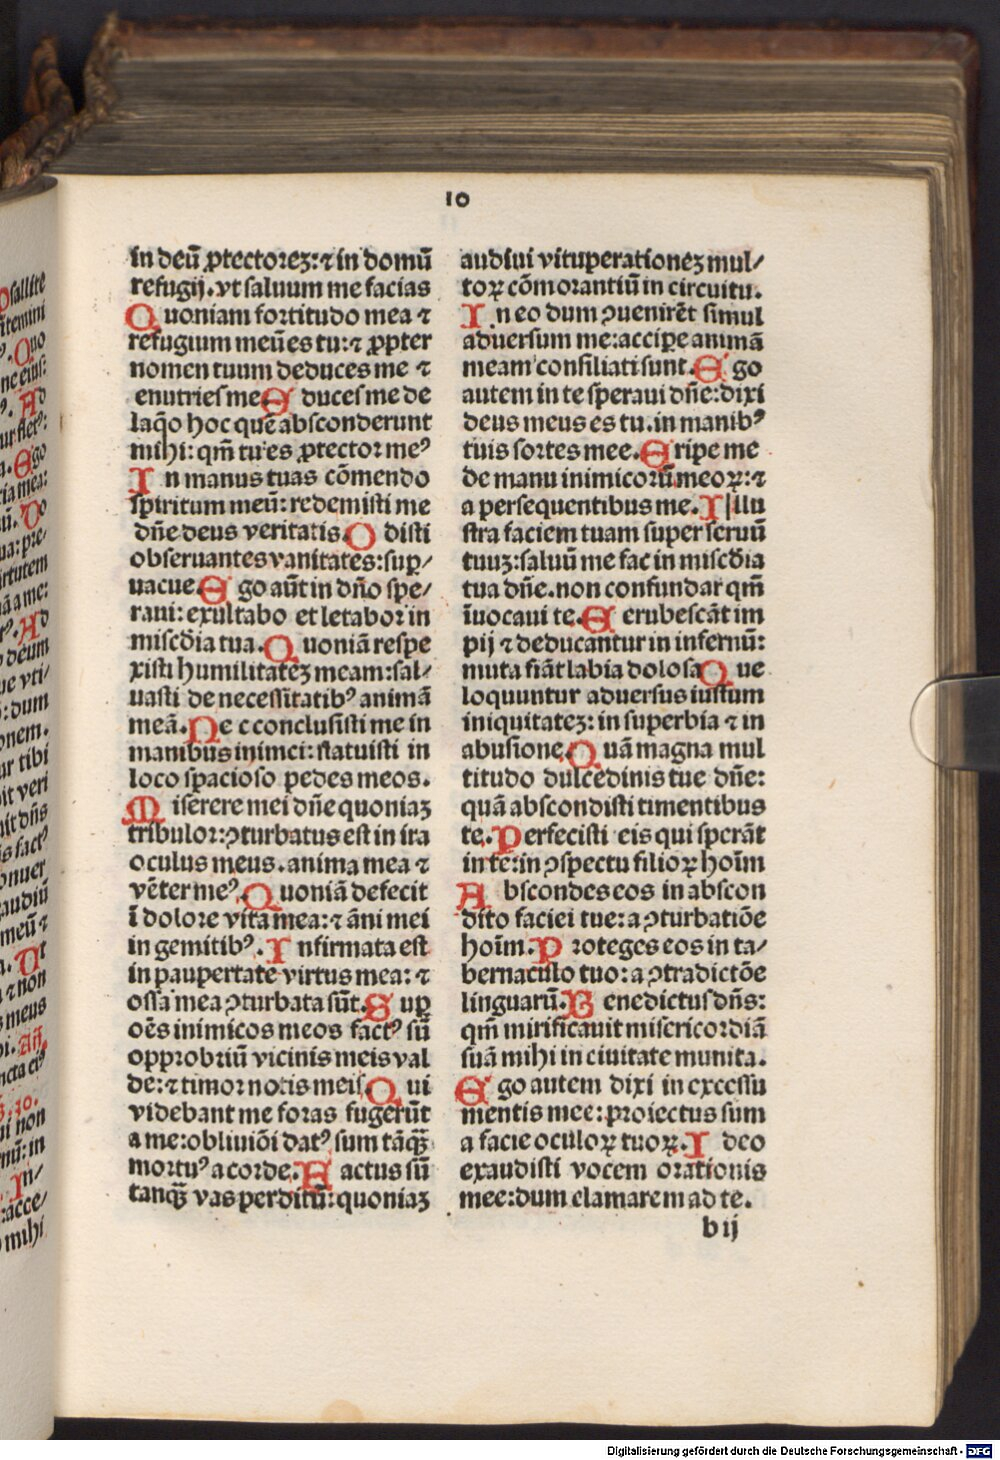 10
in deū ꝓtectorez: ⁊ in domū
refugij. vt saluum me facias
Quoniam fortitudo mea ⁊
refugium meū es tu: ⁊ ꝓpter
nomen tuum deduces me ⁊
enutries me Educes me de
laq̄o hoc quē absconderunt
mihi: qm̄ tu es ꝓtector meꝰ
In manus tuas cōmendo
spiritum meū: redemisti me
dn̄e deus veritatis. Odisti
obseruantes vanitates: sup̱/
uacue. Ego aūt in dn̄o spe/
raui: exultabo et letabor in
misc̄dia tua. Quoniā respe
xisti humilitatez meam: sal/
uasti de necessitatibꝰ animā
meā. Nec cconclusisti me in
manibus inimci: statuisti in
loco spacioso pedes meos.
Miserere mei dn̄e quoniaz
tribulor: ꝯturbatus est in ira
oculus meus. anima mea ⁊
vēter meꝰ. Quoniā defecit
ī dolore vita mea: ⁊ āni mei
in gemitibꝰ. Infirmata est
in paupertate virtus mea: ⁊
ossa mea ꝯturbata sūt. Sup̱
oēs inimicos meos factꝰ sū
opprobriū vicinis meis val
de: ⁊ timor notis meis. Qui
videbant me foras fugerūt
a me: obliuiōi datꝰ sum tāqꝫ̄
mortuꝰ a corde. Factus sū
tanqꝫ̄ vas perditū: quoniaz
audiui vituperationez mul/
toꝝ cōmorantiū in circuitu.
In eo dum ꝯuenirēt simul
aduersum me: accipe animā
meam consiliati sunt. Ego
autem in te speraui dn̄e: dixi
deus meus es tu. in manibꝰ
tuis sortes mee. Eripe me
de manu inimicorū meoꝝ: ⁊
a persequentibus me. Illu
stra faciem tuam super seruū
tuuz: saluū me fac in misc̄dia
tua dn̄e. non confundar qm̄
īuocaui te. Eerubescāt im
pij ⁊ deducantur in infernū:
muta fiāt labia dolosa Que
loquuntur aduersus iustum
iniquitatez: in superbia ⁊ in
abusione. Quā magna mul
titudo dulcedinis tue dn̄e:
quā abscondisti timentibus
te. Perfecisti eis qui sperāt
in te: in ꝯspectu filioꝝ hoīm
Abscondes eos in abscon
dito faciei tue: a ꝯturbatiōe
hoīm. Proteges eos in ta/
bernaculo tuo: a ꝯtradictōe
linguarū. Benedictus dn̄s:
qm̄ mirificauit misericordiā
suā mihi in ciuitate munita.
Ego autem dixi in excessu
mentis mee: proiectus sum
a facie oculoꝝ tuoꝝ. Ideo
exaudisti vocem orationis
mee: dum clamarem ad te.
b ij
Digitalisierung gefördert durch die Deutsche Forschungsgemeinschaft - DFG